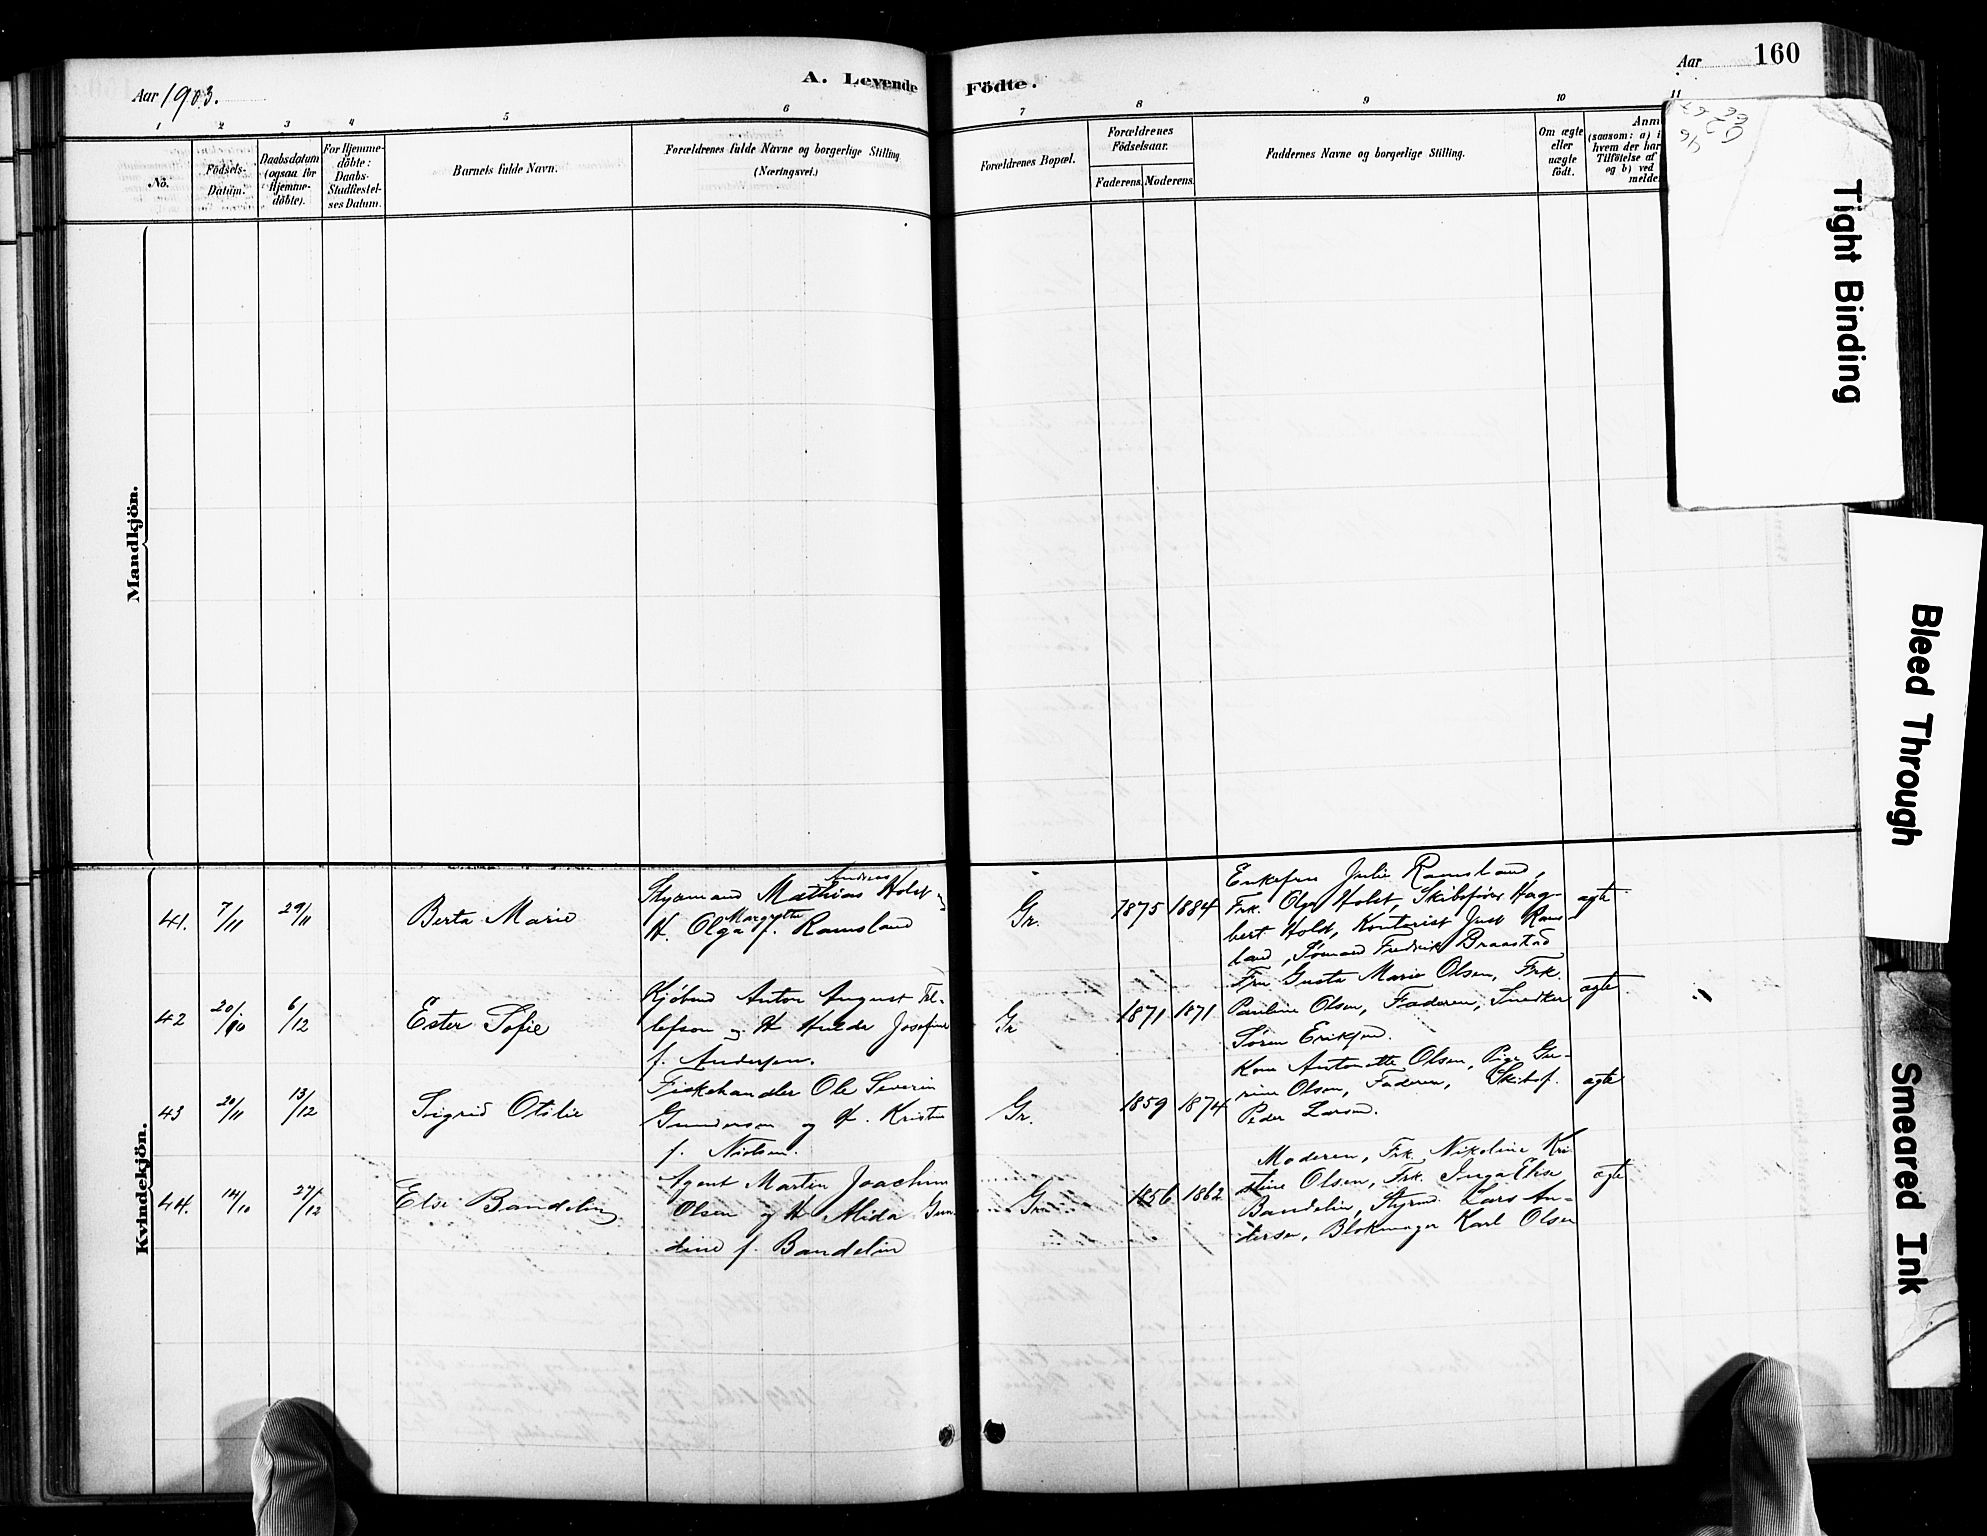 Aar 1903.
A. Levende Födte.
Aar 160
1 2 3 4 5 6 7 8 9 10 11
No.
Födsels-
Datum.
Daabsdatum
(ogsaa for
Hjemme-
döbte).
For Hjemme-
döbte:
Daabs-
Stadfæstel-
ses Datum.
Barnets fulde Navn.
Forældrenes fulde Navne og borgerlige Stilling
(Næringsvei.)
Forældrenes Bopæl.
Forældrenes
Födselsaar.
Faderens. Moderens.
Faddernes Navne og borgerlige Stilling.
Om ægte
eller
uægte
født.
Anm
(saasom: a) i
hvem der har
Tilföielse af
og b) ved
melde
Mandkjön.
Kvindekjön.
41. 7/11 29/11
Berta Marie
Andreas
Styrmand Mathias Holst og
Margrethe
H. Olga f. Ramsland
Gr.
1875 1884
Enkefru Julie Ramsland,
Frk. Olga Holst, Skibsfører Hag-
bert Holst, Kontorist Just Rams-
land, Sømand Fredrik Braastad
ægte
42 20/10 6/12
Ester Sofie
Kjøbmd Anton August Tel-
lefson og H Hulda Josefine
f. Andersen.
Gr
1871 1871
Fru Gusta Marie Olsen, Frk.
Pauline Olsen, Faderen, Snedker
Søren Eriksen.
ægte
43 20/11 13/12
Sigrid Otilie
Fiskehandler Ole Severin
Gundersen og H. Kristine
f. Nielsen.
Gr.
1859 1874
Kone Antonette Olsen, Pige Gu-
rine Olsen, Faderen, Skibsf.
Peder Larsen.
ægte
44. 14/10 27/12
Else Bandelin
Agent Martin Joachim
Olsen og H Alida Gun-
dine f. Bandelin
Gr.
1856 1862
Moderen, Frk. Nikoline Kri-
stine Olsen, Frk. Inga Elise
Bandelin, Styrmd. Lars An-
dersen, Blokmager Karl Olsen
ægte
Tight Binding
Bleed Through
Smeared Ink